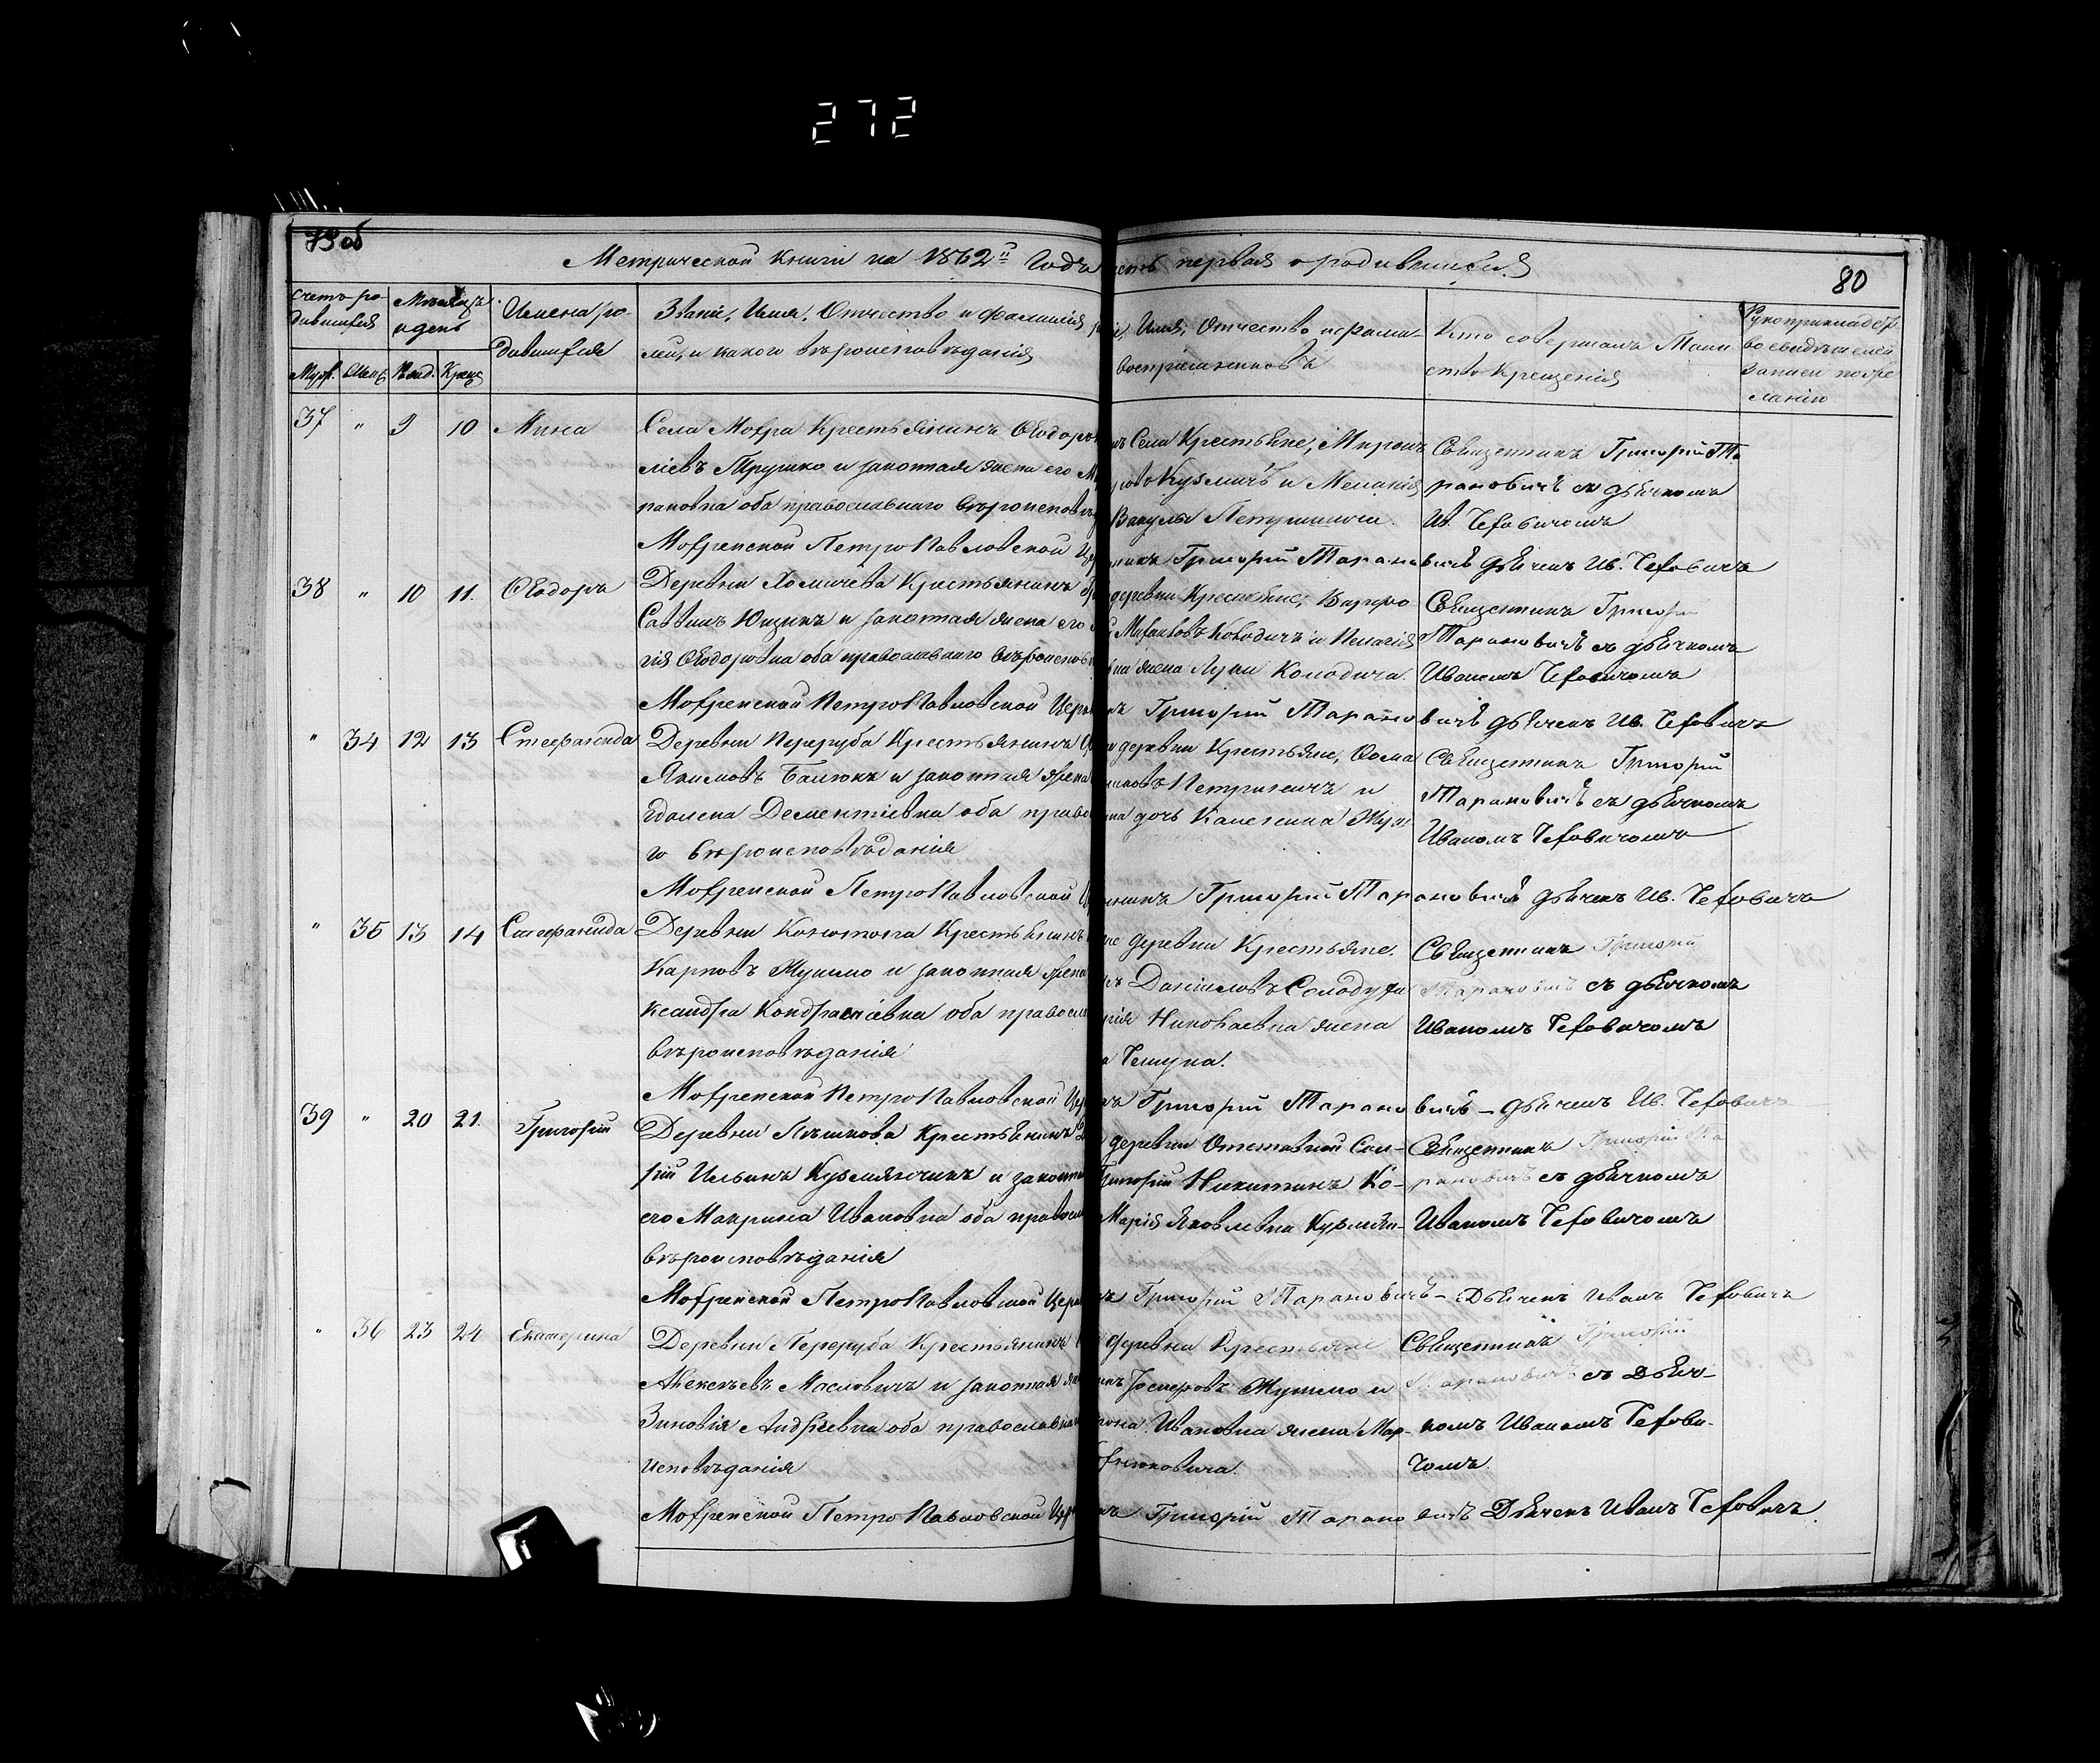 272
79 об
Метрической книги на 1862й Годъ
первая о родившихся
80
счетъ ро-
дившихся
Мѣсяцъ
и день
Имена ро-
дившихся
Званіе, Имя, Отчество и фамилія
лей, и какого вѣроисповѣданія
Имя, Отчество и фами-
воспріемниковъ
Кто совершалъ Таин-
ство Крещенія
Рукоприкладст
во свидѣтелей
записи по же
ланію
Муж. Женс Рожд. Крещ
37 " 9 10 Мина
Села Мокра Крестьянинъ Ѳеодоръ
Грушко и законная жена его
оба православнаго вѣроисповѣ
Села Крестьяне, Миронъ
Кузмичъ и Меланія
Вакулы Петрушкевича.
Священникъ Григорій Та
рановичъ съ дьячкомъ
Ив. Чеховичомъ
Мокренской ПетроПавловской Це
Григорій Тарановичъ дьячекъ Ив. Чеховичъ
38 " 10 11. Ѳеодоръ
Деревни Хомичева Крестьянинъ
Саввинъ Ющикъ и законная жена его
гія Ѳеодоровна оба православнаго вѣроисповѣ
деревни Крестьяне,
Колодичъ и Пелагія
жена Луки Колодича.
Священникъ Григорі
Тарановичъ съ дьячкомъ
Иваномъ Чеховичомъ
Мокренской ПетроПавловской Церк
Григорій Тарановичъ дьячекъ Ив. Чеховичъ
" 34 12 13 Стефанида
Деревни Переруба Крестьянинъ
Якимовъ Балюкъ и законная жена
гдалена Дементіевна оба правос
го вѣроисповѣданія
деревни Крестьяне, Ѳома
Петрикевичъ и
дочь Калениака Жук
Священникъ Григорій
Тарановичъ съ дьячкомъ
Иваномъ Чеховичомъ
Мокренской ПетроПавловской Це
Григорій Тарановичъ дьячекъ Ив. Чеховичъ
" 35 13 14 Стефанида
Деревни Конотопа Крестьянинъ
Карповъ Жушмо и законная жена
ксандра Кондратіевна оба правосл
вѣроисповѣданія
деревни Крестьяне.
Даніиловъ Солодуха
рія Николаевна жена
Священникъ Григорій
Тарановичъ съ дьячкомъ
Иваномъ Чеховичомъ
Мокренской ПетроПавловской Це
Григорій Тарановичъ – дьячекъ Ив. Чеховичъ
39 " 20 21. Григорій
Деревни Пѣшкова Крестьянинъ
рій Ильинъ Кузмянчикъ и законн
его Макрина Ивановна оба правосл
вѣроисповѣданія
деревни Отставной Сол-
Григорій Никитинъ Ко-
Марія Яковлевна
Священникъ Григорій Та
рановичъ съ дьячкомъ
Иваномъ Чеховичомъ
Мокренской ПетроПавловской Церк
Григорій Тарановичъ – Дьячекъ Иванъ Чеховичъ
" 36 23 24 Екатерина
Деревни Переруба Крестьянинъ
Алексѣевъ Масловичъ и законная
Зиновія Андреевна оба православна
исповѣданія
деревни Крестьяне
Жушмо и
Ивановна жена Мар-
Священникъ Григорій
Тарановичъ съ Дьяч-
комъ Иваномъ Чехови-
чомъ
Мокренской ПетроПавловской Цер
Григорій Тарановичъ Дьячекъ Иванъ Чеховичъ.